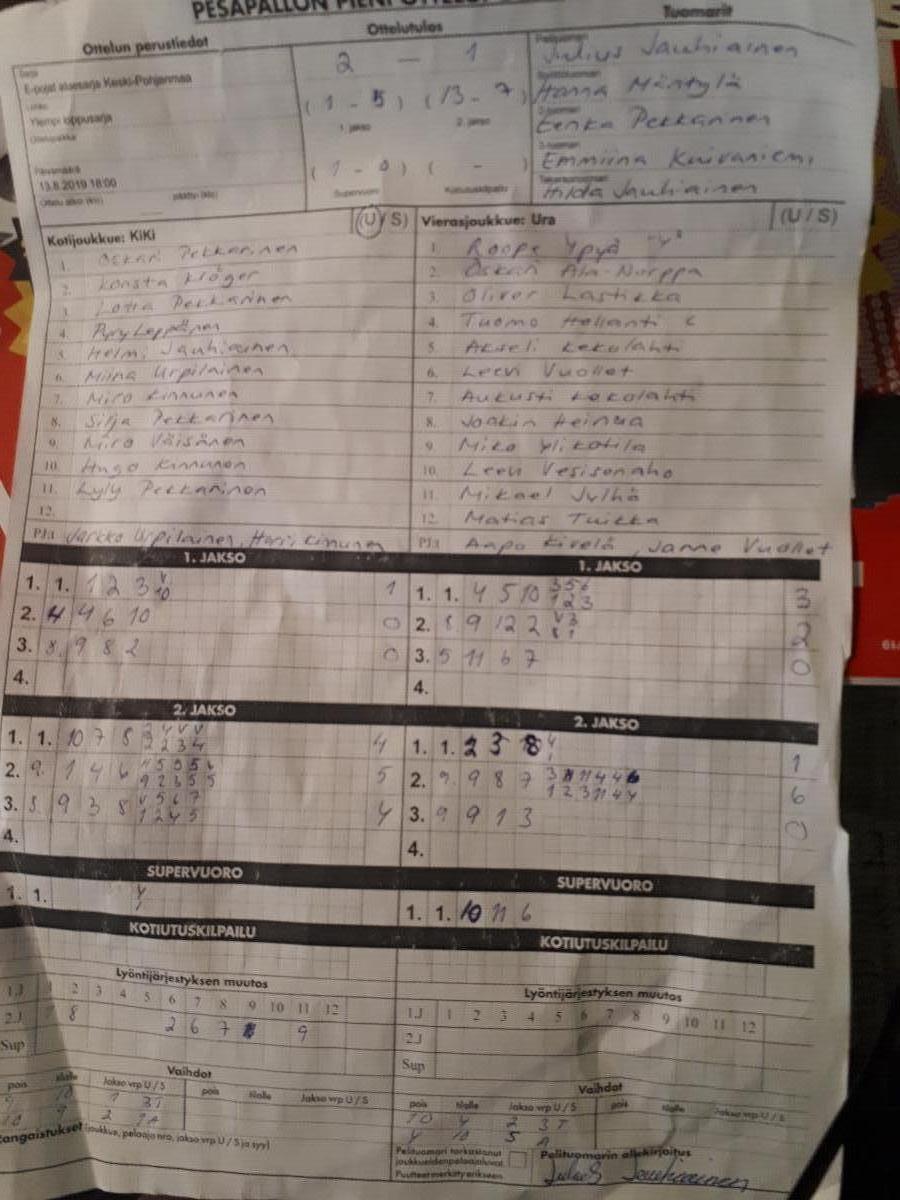 PESÄPALLON PIENI OTTELU
Ottelun perustiedot
Ottelutulos
Tuomarit
E-pojat aluesarja Keski-Pohjanmaa
Ylempi loppusarja
13.8.2019 18:00
2 — 1
(1 - 5) (13 - 7)
1. jakso 2. jakso
(1 - 0) ( - )
Supervuoro Kotiutuskilpailu
Julius Jauhiainen
Hanna Mäntylä
Eenka Pekkarinen
Emmiina Kuivaniemi
Hilda Jauhiainen
Kotijoukkue: KiKi (U/S)
1. Oskari Pekkarinen
2. Konsta Kröger
3. Lotta Pekkarinen
4. Pyry Leppänen
5. Helmi Jauhiainen
6. Miina Urpilainen
7. Miro Kinnunen
8. Silja Pekkarinen
9. Miro Väisänen
10. Hugo Kinnunen
11. Lyly Pekkarinen
12.
PJ:t Jarkko Urpilainen, Harri Kinnunen
Vierasjoukkue: Ura (U/S)
1. Roope Ypyä
2. Oskari Ala-Nurppa
3. Oliver Lastikka
4. Tuomo Hollanti
5. Akseli Kekolahti
6. Leevi Vuollet
7. Aukusti Kekolahti
8. Joakin Heinua
9. Miko Ylikotila
10. Leevi Vesisenaho
11. Mikael Jylhä
12. Matias Tuikka
PJ:t Aapo Kivelä, Janne Vuollet
1. JAKSO
1. 1. 1 2 3 1
2. 4 4 6 10 0
3. 8 9 8 2 0
4.
1. JAKSO
1. 1. 4 5 10 3
2. 8 9 12 2 2
3. 5 11 6 7 0
4.
2. JAKSO
1. 1. 10 7 8 4
2. 9. 1 4 6 5
3. 5 9 3 8 4
4.
2. JAKSO
1. 1. 2 3 8 1
2. 9. 9 8 7 6
3. 9 9 1 3 0
4.
SUPERVUORO
1. 1.
SUPERVUORO
1. 1. 10 11 6
KOTIUTUSKILPAILU
KOTIUTUSKILPAILU
Lyöntijärjestyksen muutos
2 3 4 5 6 7 8 9 10 11 12
1.J
2.J 8 2 6 7 9
Sup
Lyöntijärjestyksen muutos
1 2 3 4 5 6 7 8 9 10 11 12
1.J
2.J
Sup
Vaihdot
pois tilalle Jakso vrp U / S pois tilalle Jakso vrp U / S
Vaihdot
pois tilalle Jakso vrp U / S pois tilalle Jakso vrp U / S
10 4 2 3T
(joukkue, pelaaja nro, jakso vrp U / S ja syy)
Pelituomari tarkastanut
joukkueidenpelaajaluvat
Puutteet merkitty erikseen
Pelituomarin allekirjoitus
Julius Jauhiainen